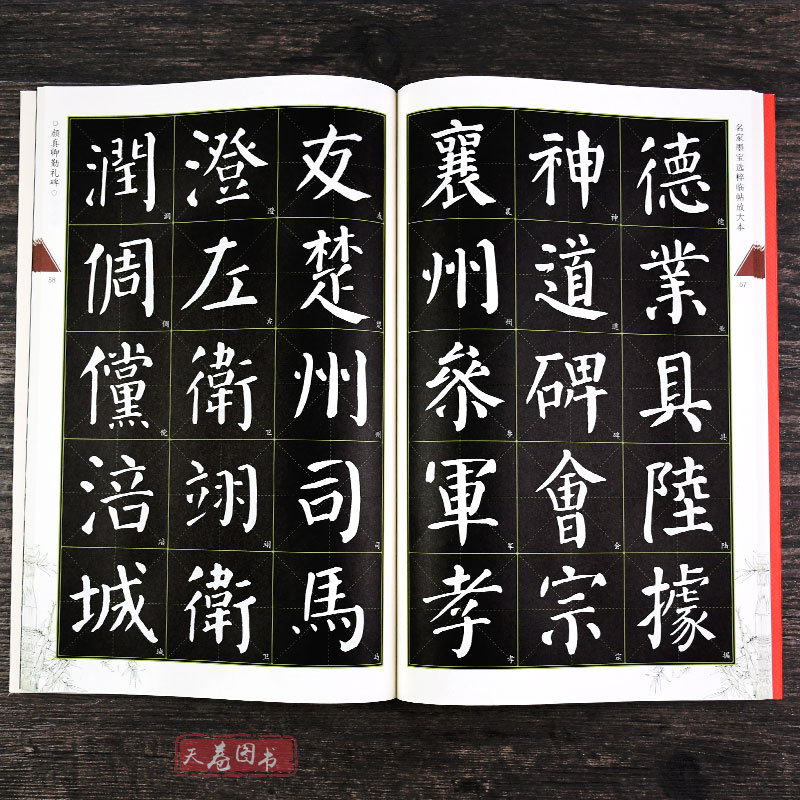 名家墨宝选粹临帖放大本
57
德業具陸據
神道碑會宗
襄州叅軍孝
友楚州司馬
澄左衛翊衛
潤倜儻涪城
颜真卿勤礼碑
58
天卷图书